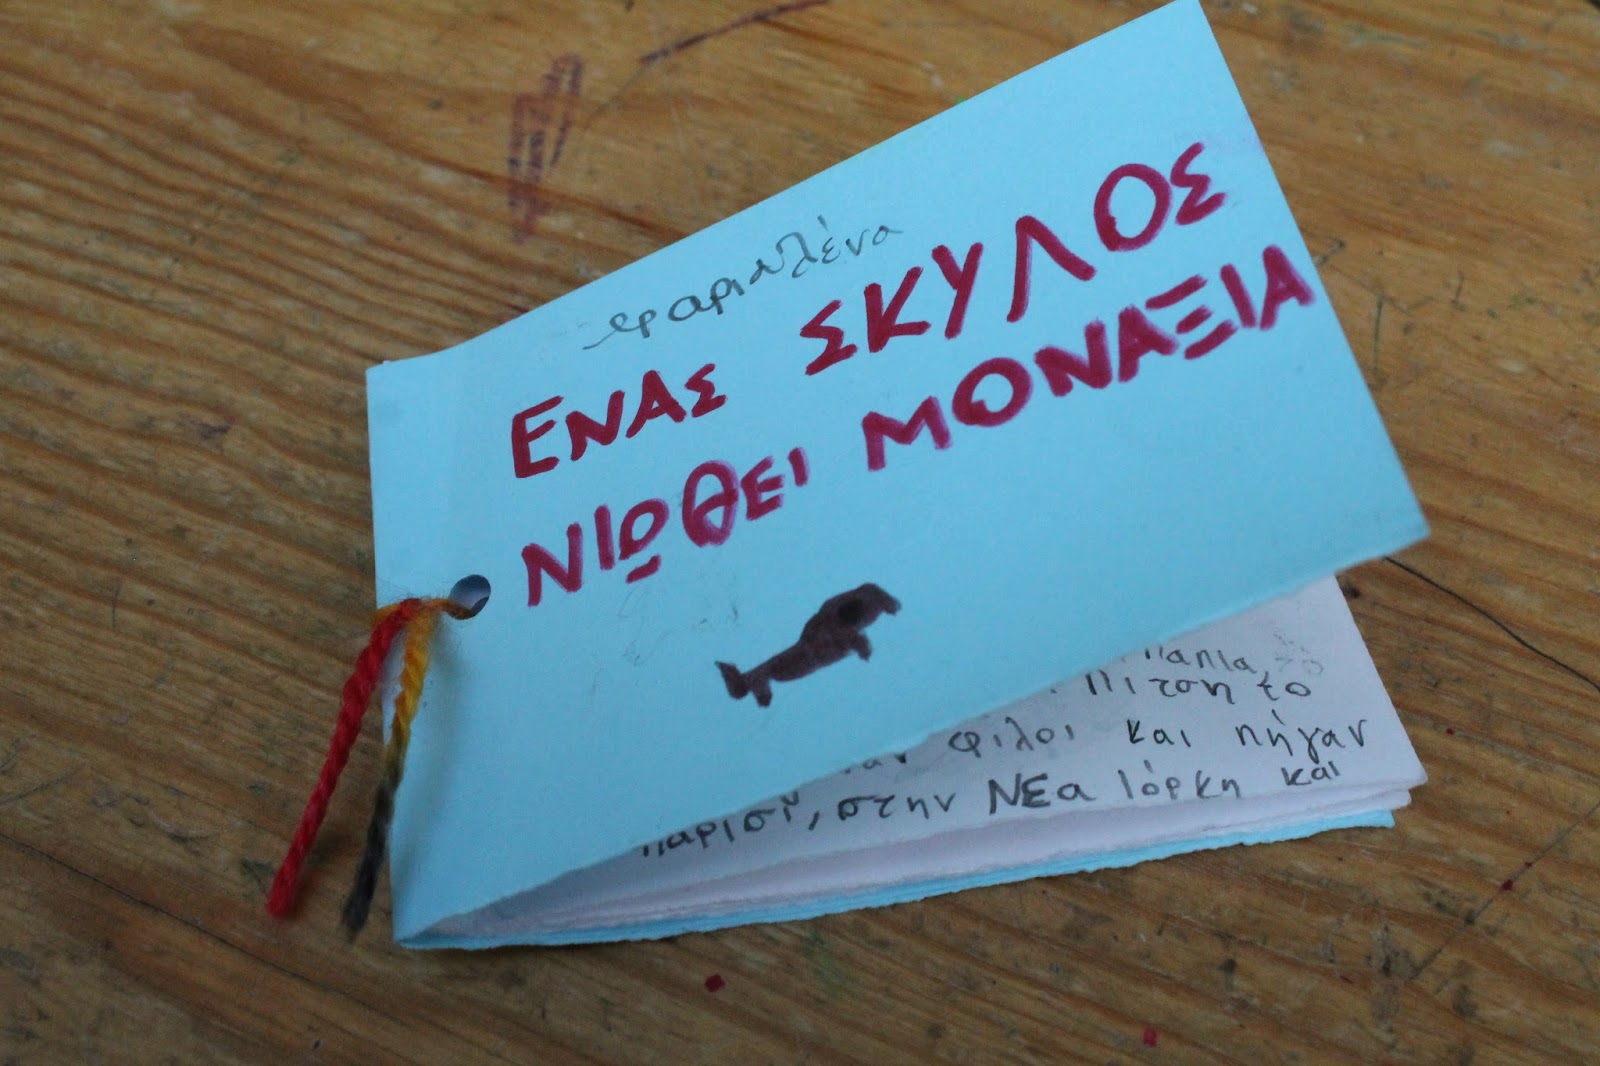 Μαριαλένα
ΕΝΑΣ ΣΚΥΛΟΣ
ΝΙΩΘΕΙ ΜΟΝΑΞΙΑ
το
φιλοι και πήγαν
Παρισϊ, στην ΝΕα Ιόρκη και